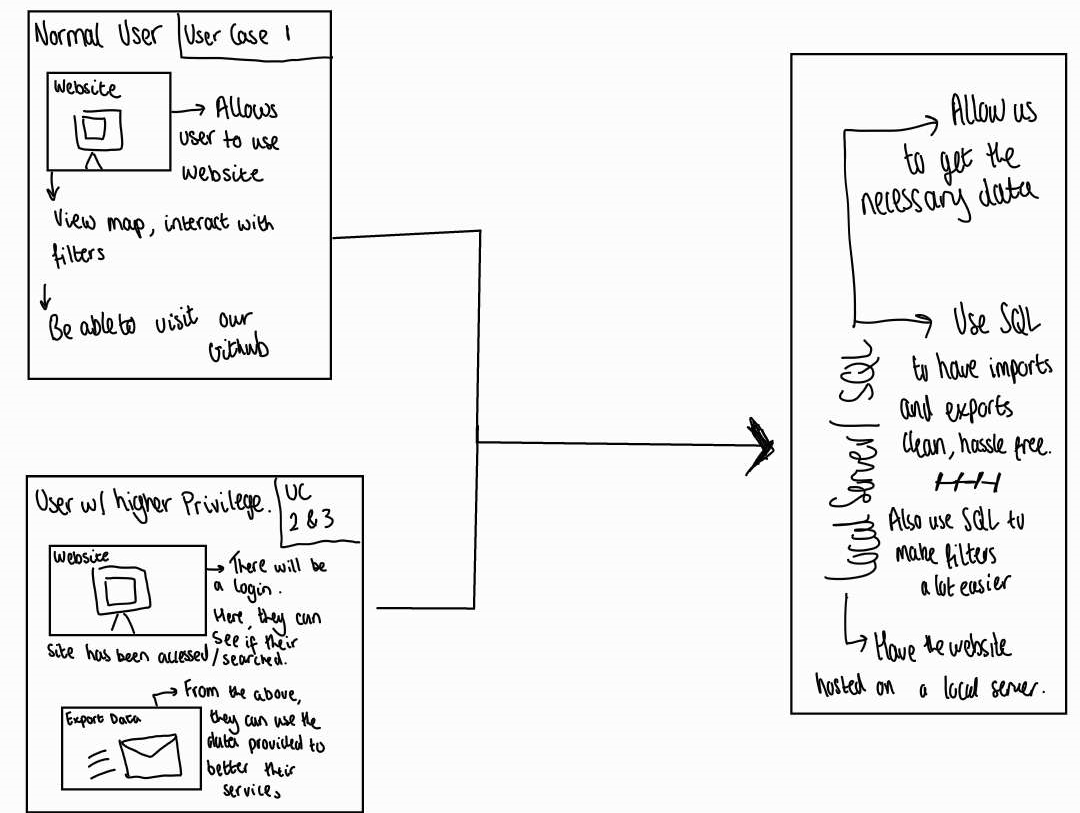 Normal User
User Case 1
Website
Allows
user to use
website
View map, interact with
filters
Be able to visit our
Github
User w/ higher Privilege.
UC
2 & 3
Website
There will be
a login.
Here, they can
see if their
site has been accessed / searched.
From the above,
Export Data
they can use the
data provided to
better their
services
Local Server / SQL
Allow us
to get the
necessary data
Use SQL
to have imports
and exports
clean, hassle free.
Also use SQL to
make filters
a lot easier
Have the website
hosted on a local server.